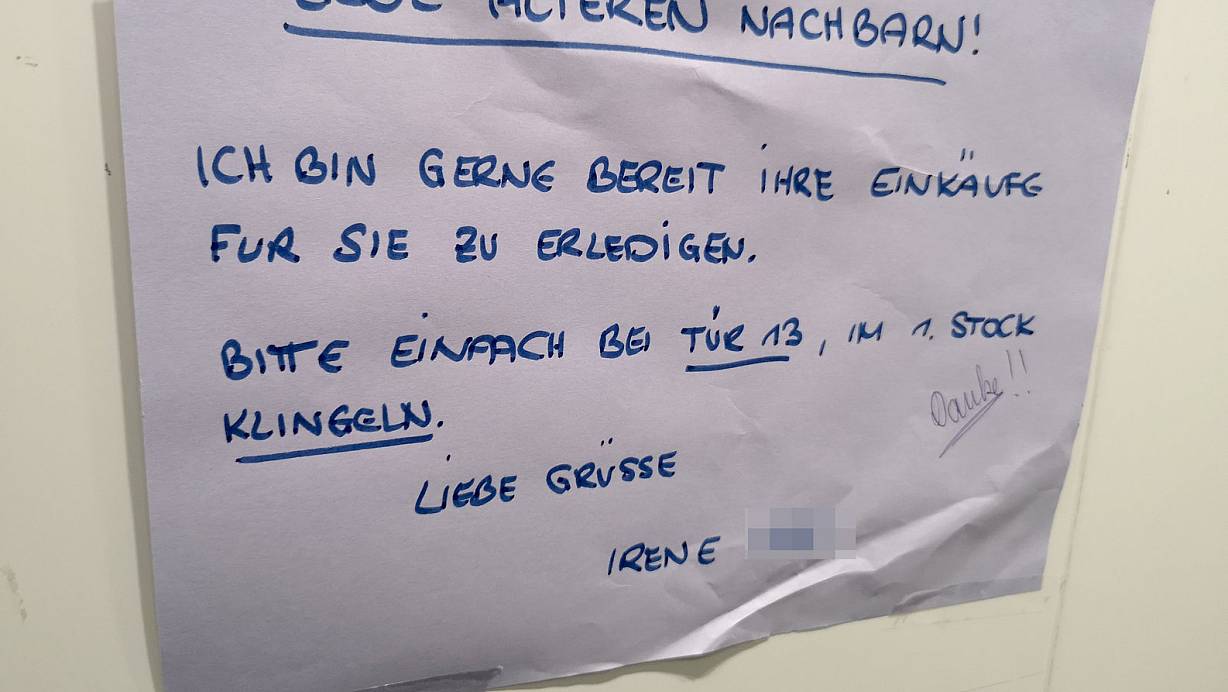 ÄLTEREN NACHBARN!
ICH BIN GERNE BEREIT IHRE EINKÄUFE
FUR SIE ZU ERLEDIGEN.
BITTE EINFACH BEI TÜR 13, IM 1. STOCK
Danke!!
KLINGELN.
LIEBE GRÜSSE
IRENE